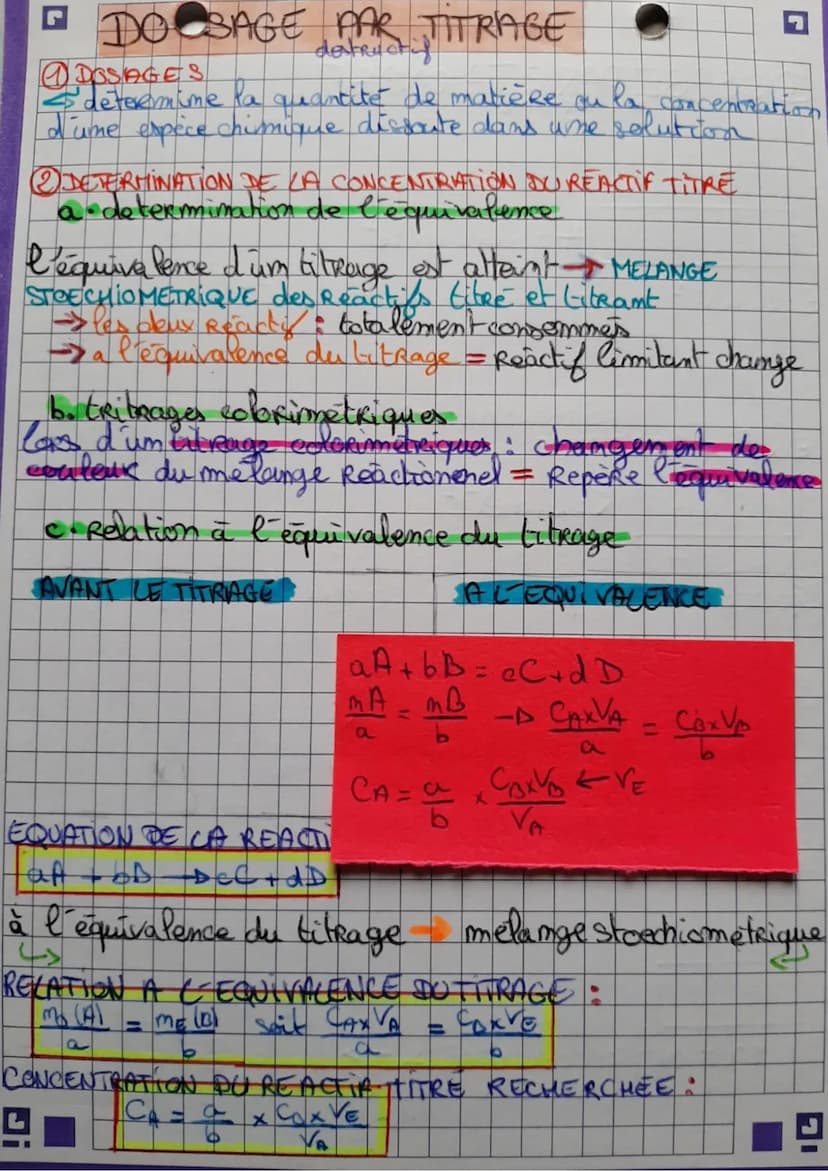 DOOSAGE PAR TITRAGE
destructif
① DOSAGES
↳ détermine la quantité de matière ou la concentration
d'une espèce chimique dissoute dans une solution
② DETERMINATION DE LA CONCENTRATION DU REACTIF TITRE
a. determination de l'équivalence
l'équivalence d'un titrage est atteint → MELANGE
STOECHIOMETRIQUE des Réactifs titré et titrant
→ les deux Réactif : totalement consommés
→ a l'équivalence du titrage = Réactif limitant change
b. tritrages colorimétriques
lors d'un titrage colorimétriques : changement de
couleur du mélange Réactionenel = Repère l'équivalence
c. Relation à l'équivalence du titrage
AVANT LE TITRAGE A L'EQUIVALENCE
aA + bB = cC + dD
nA/a = nB/b → CA×VA/a = CB×VB/b
CA = a/b × CB×VB/VA ← VE
EQUATION DE LA REACTI
aA + bB → cC + dD
à l'équivalence du titrage → mélange stoechiométrique
RELATION A L'EQUIVALENCE DU TITRAGE :
n0(A)/a = nE(B)/b soit CA×VA/a = CB×VE/b
CONCENTRATION DU REACTIF TITRE RECHERCHÉE :
CA = a/b × CB×VE/VA